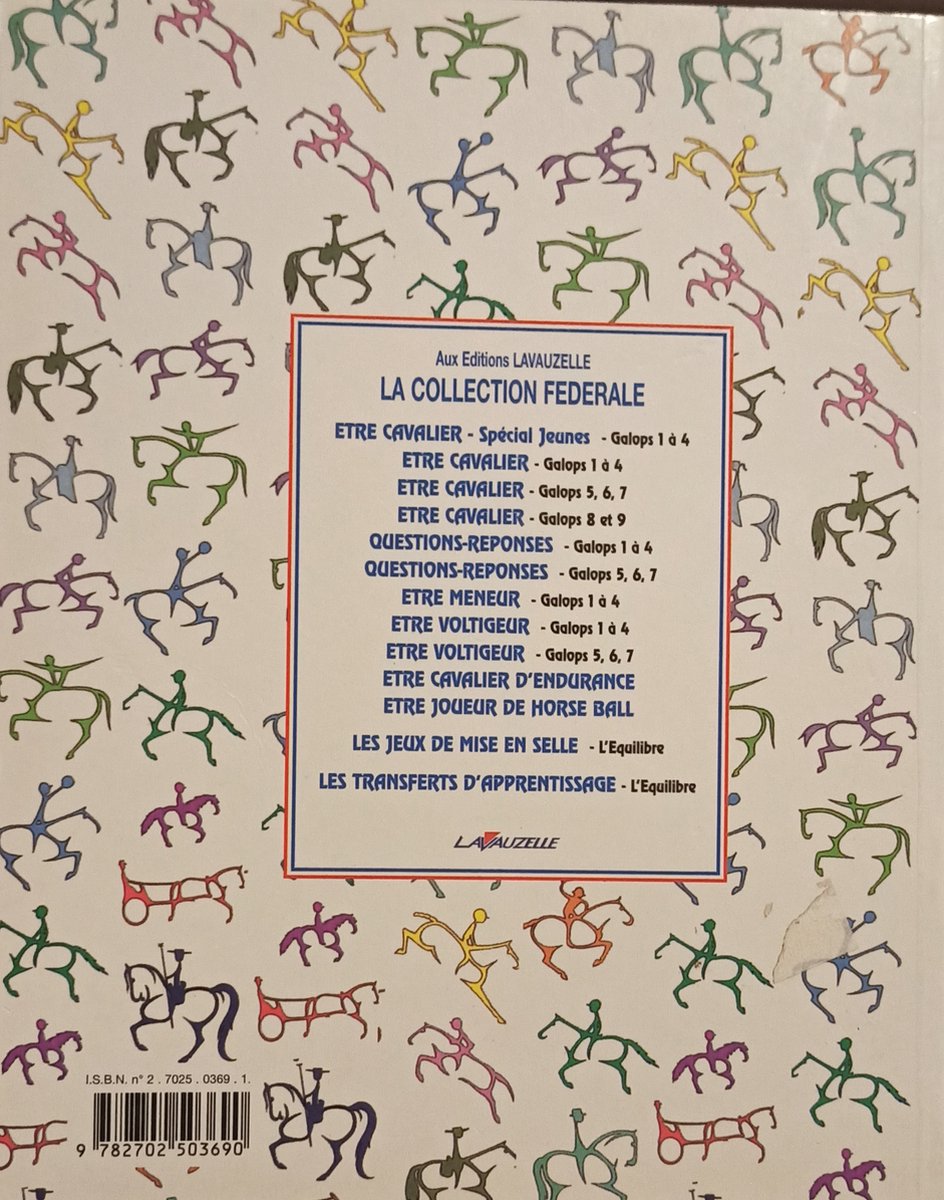 Aux Editions LAVAUZELLE
LA COLLECTION FEDERALE
ETRE CAVALIER - Spécial Jeunes - Galops 1 à 4
ETRE CAVALIER - Galops 1 à 4
ETRE CAVALIER - Galops 5, 6, 7
ETRE CAVALIER - Galops 8 et 9
QUESTIONS-REPONSES - Galops 1 à 4
QUESTIONS-REPONSES - Galops 5, 6, 7
ETRE MENEUR - Galops 1 à 4
ETRE VOLTIGEUR - Galops 1 à 4
ETRE VOLTIGEUR - Galops 5, 6, 7
ETRE CAVALIER D'ENDURANCE
ETRE JOUEUR DE HORSE BALL
LES JEUX DE MISE EN SELLE - L'Equilibre
LES TRANSFERTS D'APPRENTISSAGE - L'Equilibre
LAVAUZELLE
I.S.B.N. n° 2 . 7025 . 0369 . 1.
9 782702 503690